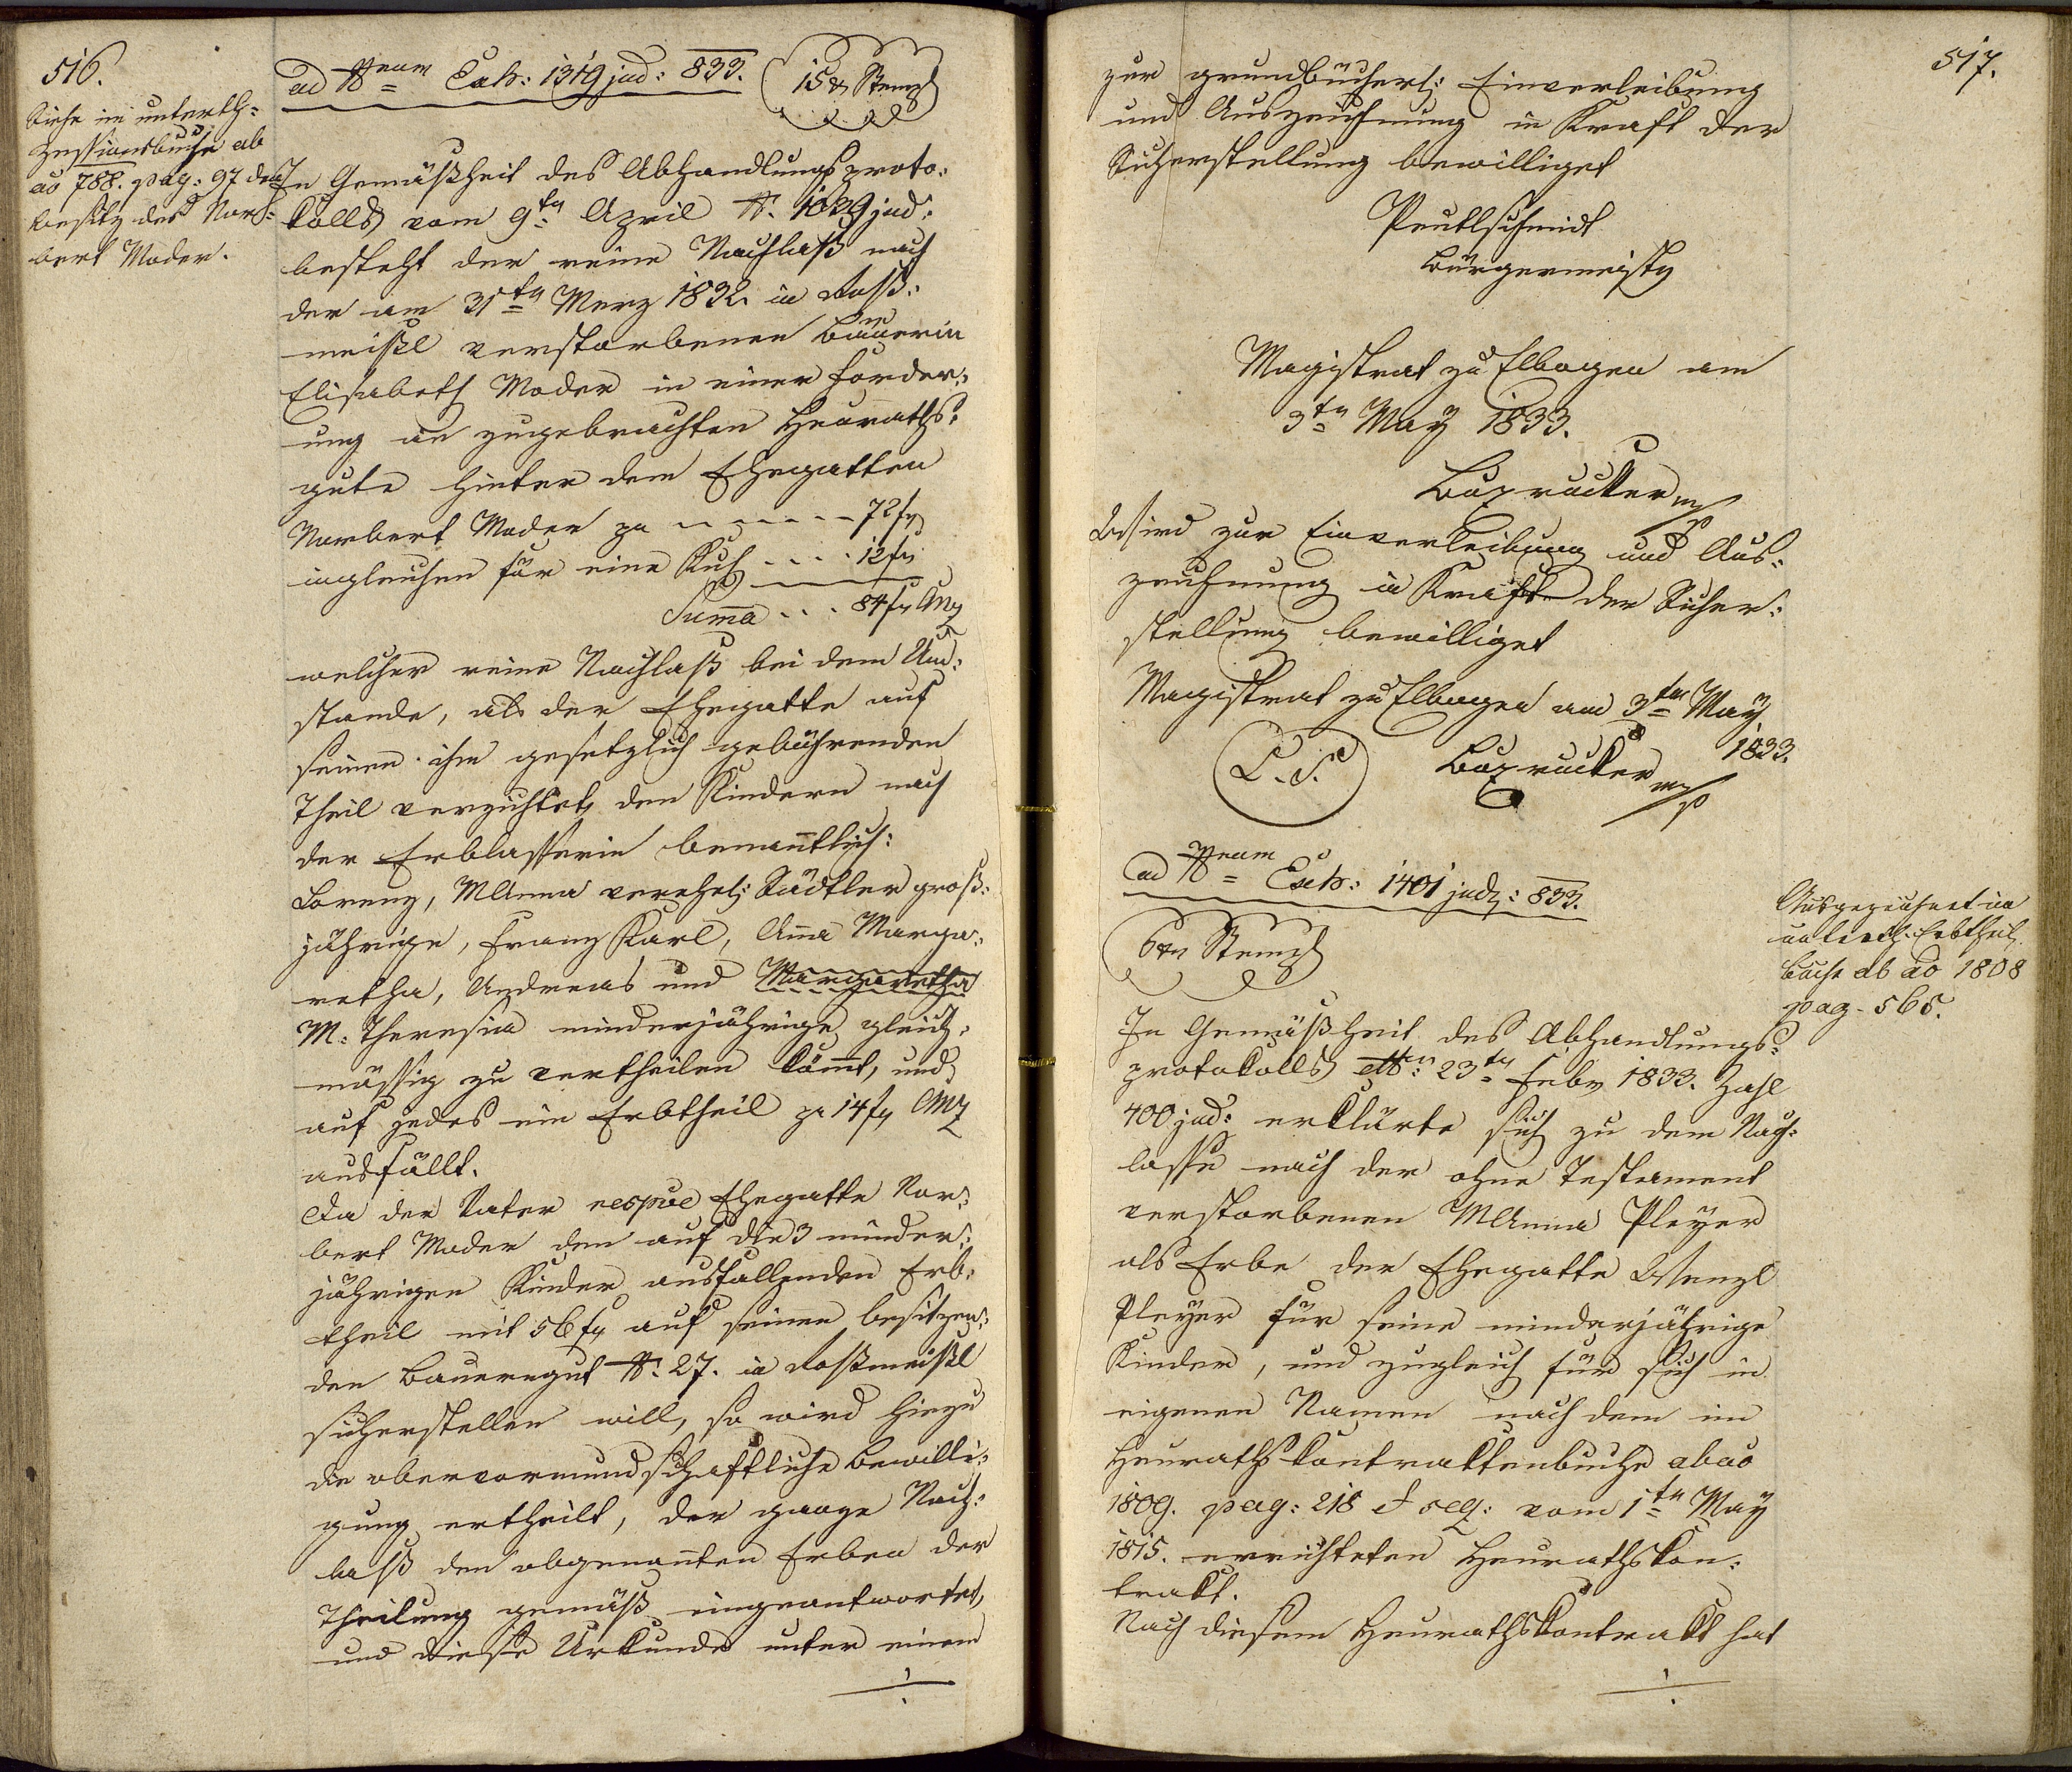 516.
Siehe in unterth:
Zessionsbuche ab
ao 788. pag: 97 den
besitz des Nor-
bert Moder.
ad Nrum Exh: 1319 jud: 833.
15 xr Stempl
In Gemäßheit des Abhandlungsproto-
kolls vom 9ten April N. 1029 jud:
besteht der reine Nachlaß nach
der am 31ten Merz 1832 in Roß-
meißl verstorbenen Bäuerin
Elisabeth Moder in einer Forder-
ung an zugebrachten Heuraths-
gute hinter dem Ehegatten
Norbert Moder pr ------ 72 fr
ingleichen für eine Kuh .... 12 fr
Suma ... 84 fr CMz
welcher reine Nachlaß bei dem Um-
stande, als der Ehegatte auf
seinen ihm gesetzlich gebührenden
Theil verzichtet, den Kindern nach
der Erblasserin benanntlich:
Lorenz, MAnna verehel: Sädtler groß-
jährige, Franz Karl, Anna Marga-
retha, Andreas und Margaretha
M: Theresia minderjährige gleich-
mässig zu vertheilen kömt, und
auf jedes ein Erbtheil pr 14 fr CMz
ausfällt.
Da der Vater respve Ehegatte Nor-
bert Moder den auf die 3 minder-
jährigen Kinder ausfallenden Erb-
theil mit 56 fr auf seinem besitzen-
den Bauerngut N: 27. in Roßmeißl
sicherstellen will, so wird hiezu
die obervormundschaftliche Bewilli-
gung ertheilt, der ganze Nach-
laß den obgenannten Erben der
Theilung gemäß eingeantwortet,
und diese Urkunde unter einem
517.
zur grundbücherl: Einverleibung
und Auszeichnung in Kraft der
Sicherstellung bewilliget
Peutlschmidt
Bürgermeister
Magistrat zu Elbogen am
3ten May 1833.
Buxrucker mp
Wird zur Einverleibung und Aus-
zeichnung in Kraft der Sicher-
stellung bewilliget
Magistrat zu Elbogen am 3ten May
1833.
L. S.
Buxrucker mp
ad Nrum Exh: 1401 jud: 833.
6 xr Stempl
Ausgezeichnet im
unterth. Erbtheil
buche ab ao 1808
pag. 565.
In Gemäßheit des Abhandlungs-
protokolls dtto 23ten Febr 1833. Zahl
400 jud: erklärte sich zu dem Nach-
lasse nach der ohne Testament
verstorbenen MAnna Pleyer
als Erbe der Ehegatte Wenzl
Pleyer für seine minderjährige
Kinder, und zugleich für sich in
eigenen Namen nach dem im
Heurathskontraktenbuche ab ao
1809. pag: 218 et seq: vom 1ten May
1815. errichteten Heurathskon-
trakt.
Nach diesem Heurathskontrakt hat